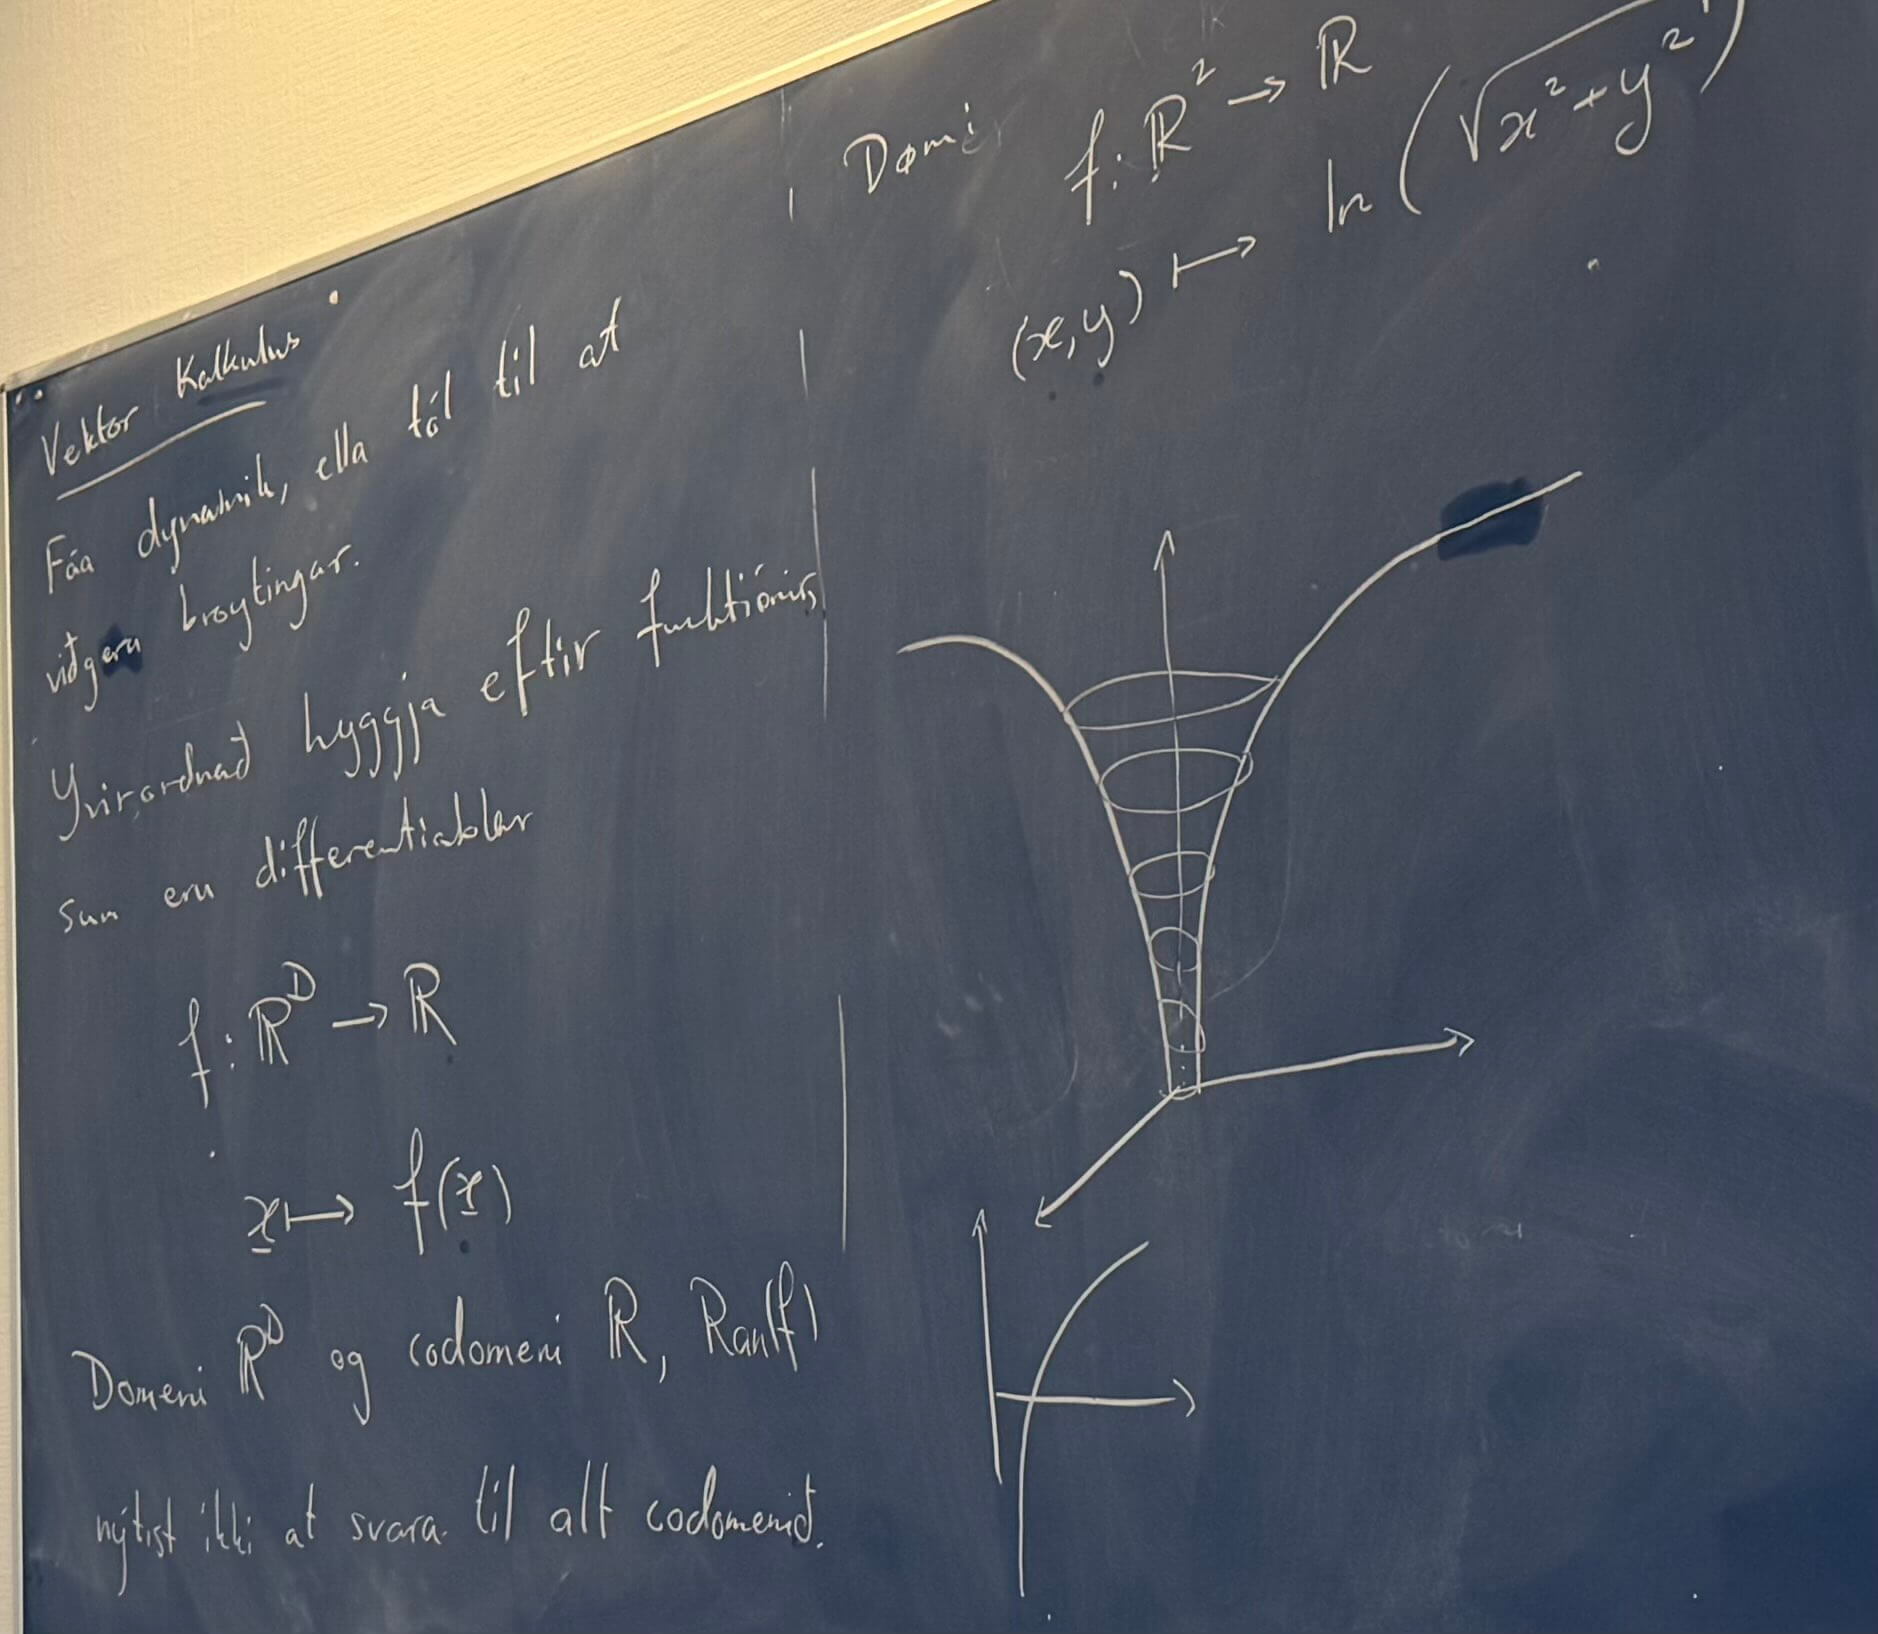 Vektor Kalkulus
Fáa dynamik, ella tól til at
viðgera broytingar.
Yvirordnað hyggja eftir funktiónir,
sum eru differentiablar
f: ℝᴰ → ℝ
x ↦ f(x)
Domeni ℝᴰ og codomeni ℝ, Ran(f)
nýtist ikki at svara til alt codomenið.
Dømi f: ℝ² → ℝ
(x,y) ↦ ln(√x²+y²)